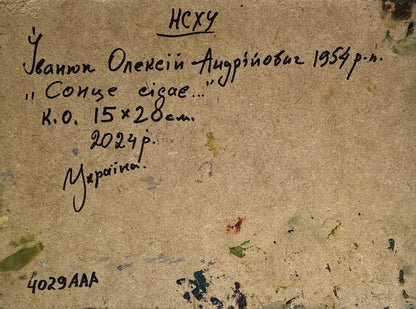 НСХУ
Іванюк Олексій Андрійович 1954р.н.
„Сонце сідає..."
К.О. 15×20см.
2024р.
Україна.
4029ААА